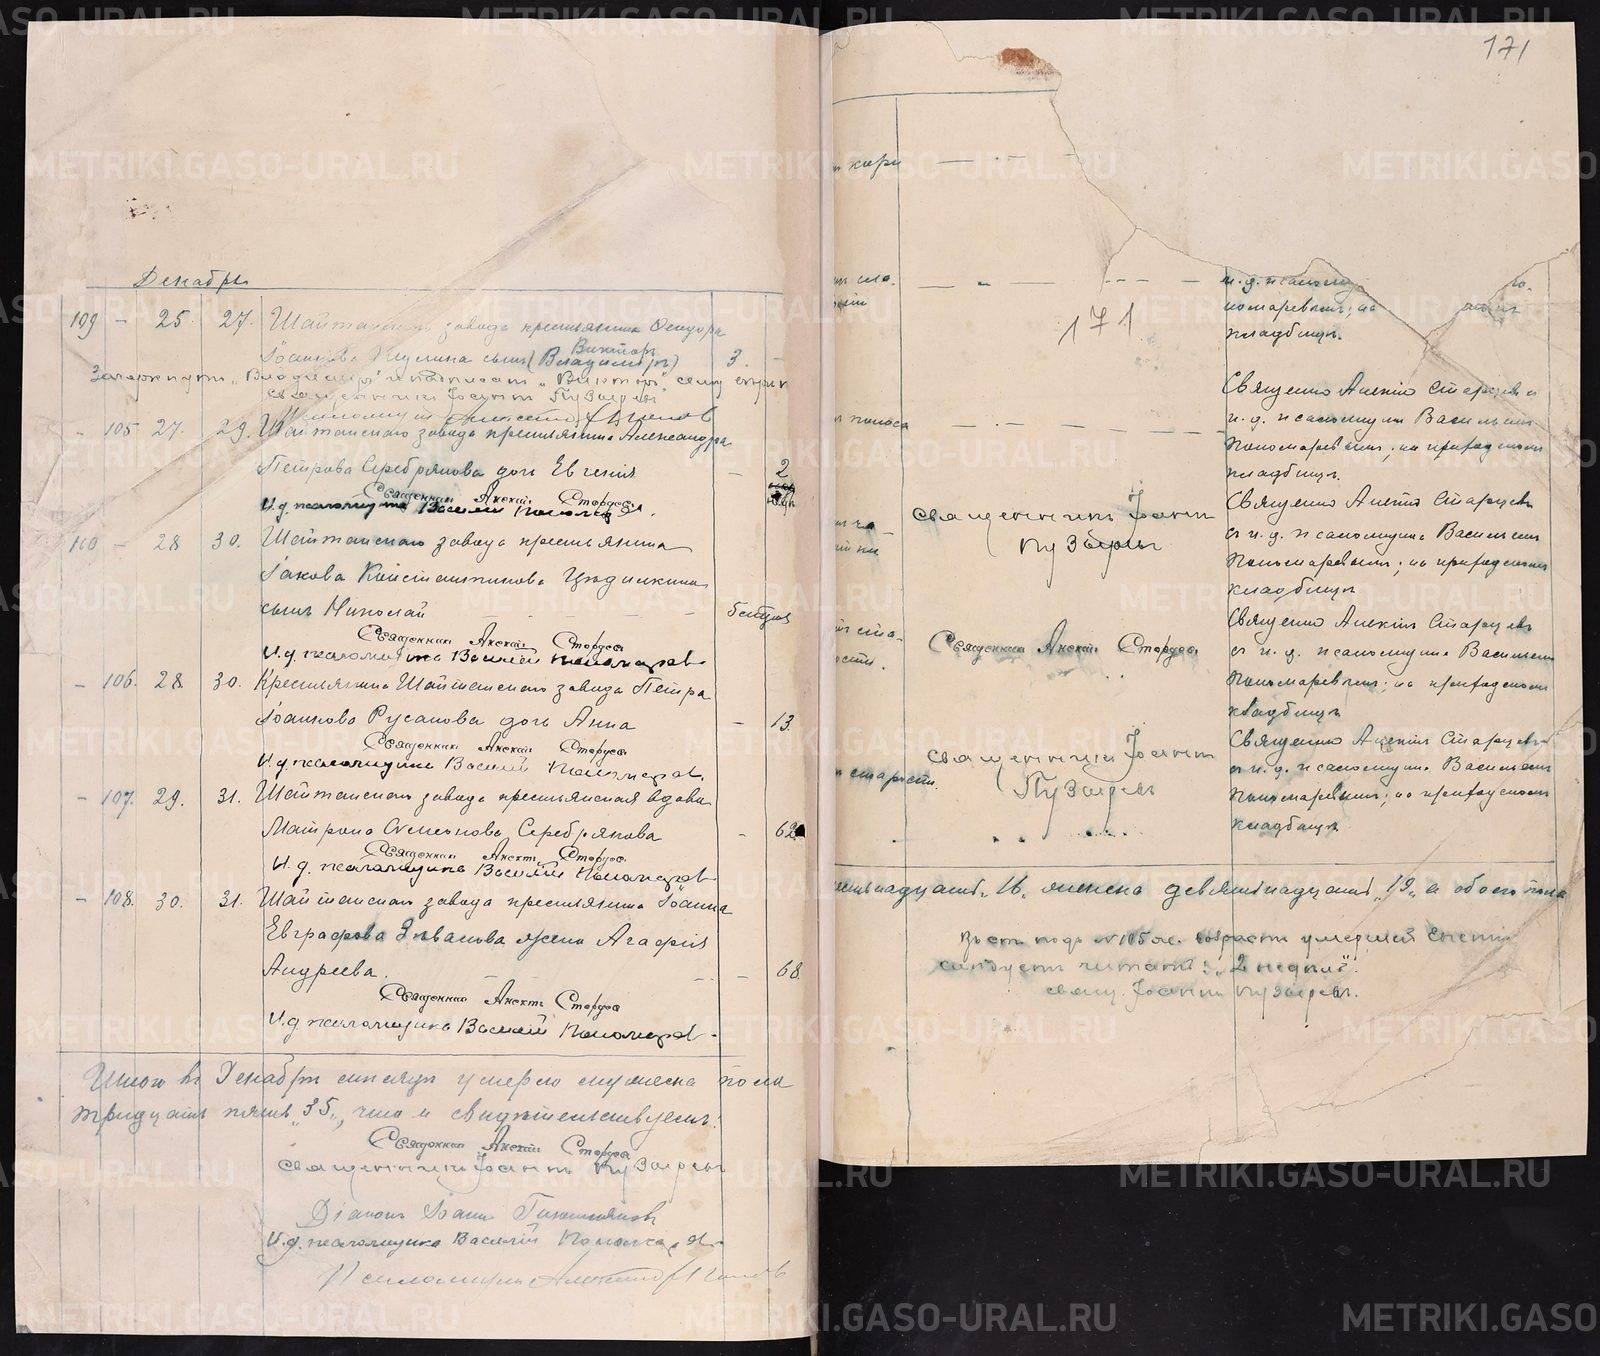 Декабрь
109 – 25 27. Шайтанскаго завода крестьянина Ѳеодора
Іоаннова сынъ (Владиміръ) Викторъ 3.
Зачеркнуто „Владиміръ“ и надписано „Викторъ“
священникъ Іоаннъ Пузыревъ
- 105 27. 29. Шайтанскаго завода крестьянина Александра
Петрова Серебрякова дочь Евгенія – 2
Священникъ Алексій Старцевъ
И.д. псаломщика Василій Пономаревъ.
110 – 28 30. Шайтанскаго завода крестьянина
Іакова Константинова
сынъ Николай
Священникъ Алексій Старцевъ
И.д. псаломщика Василій Пономаревъ
- 106. 28. 30. Крестьянина Шайтанскаго завода Петра
Іоаннова Русакова дочь Анна – 13.
Священникъ Алексій Старцевъ
И.д. псаломщика Василій Пономаревъ.
- 107. 29. 31. Шайтанскаго завода крестьянская вдова
Матрона Симеонова Серебрякова - 62
Священникъ Алексій Старцевъ
И.д. псаломщика Василій Пономаревъ
- 108. 30. 31. Шайтанскаго завода крестьянина Іоанна
Евграфова жена Агафія
Андреева. – 68.
Священникъ Алексій Старцевъ
И.д. псаломщика Василій Пономаревъ.
Итого въ Декабрѣ мѣсяцѣ умерло мужеска пола
„35“, в чемъ и свидѣтельствуемъ:
Священникъ Алексій Старцевъ
священникъ Іоаннъ Пузыревъ
Діаконъ Іоаннъ
И.д. псаломщика Василій Пономаревъ
Псаломщикъ
171
171
и.д. псаломщ
кладбищѣ.
Священно Алексій Старцевъ съ
и.д. псаломщика Василіемъ
Пономаревымъ; на приходскомъ
кладбищѣ.
священникъ Іоаннъ
Пузыревъ
Священно Алексій Старцевъ
съ и.д. псаломщика Василіемъ
Пономаревымъ; на приходскомъ
кладбищѣ
Священникъ Алексій Старцевъ
Священно Алексій Старцевъ
съ и.д. псаломщика Василіемъ
Пономаревымъ; на приходскомъ
кладбищѣ
священникъ Іоаннъ
Пузыревъ
старости.
Священно Алексій Старцевъ
съ и.д. псаломщика Василіемъ
Пономаревымъ; на приходскомъ
кладбищѣ
16, женска девятнадцать „19“, а обоего пола
подъ № 105 возрастъ умершей
слѣдуетъ читать: „2 недѣли“.
свящ. Іоаннъ Пузыревъ.
METRIKI.GASO-URAL.RU